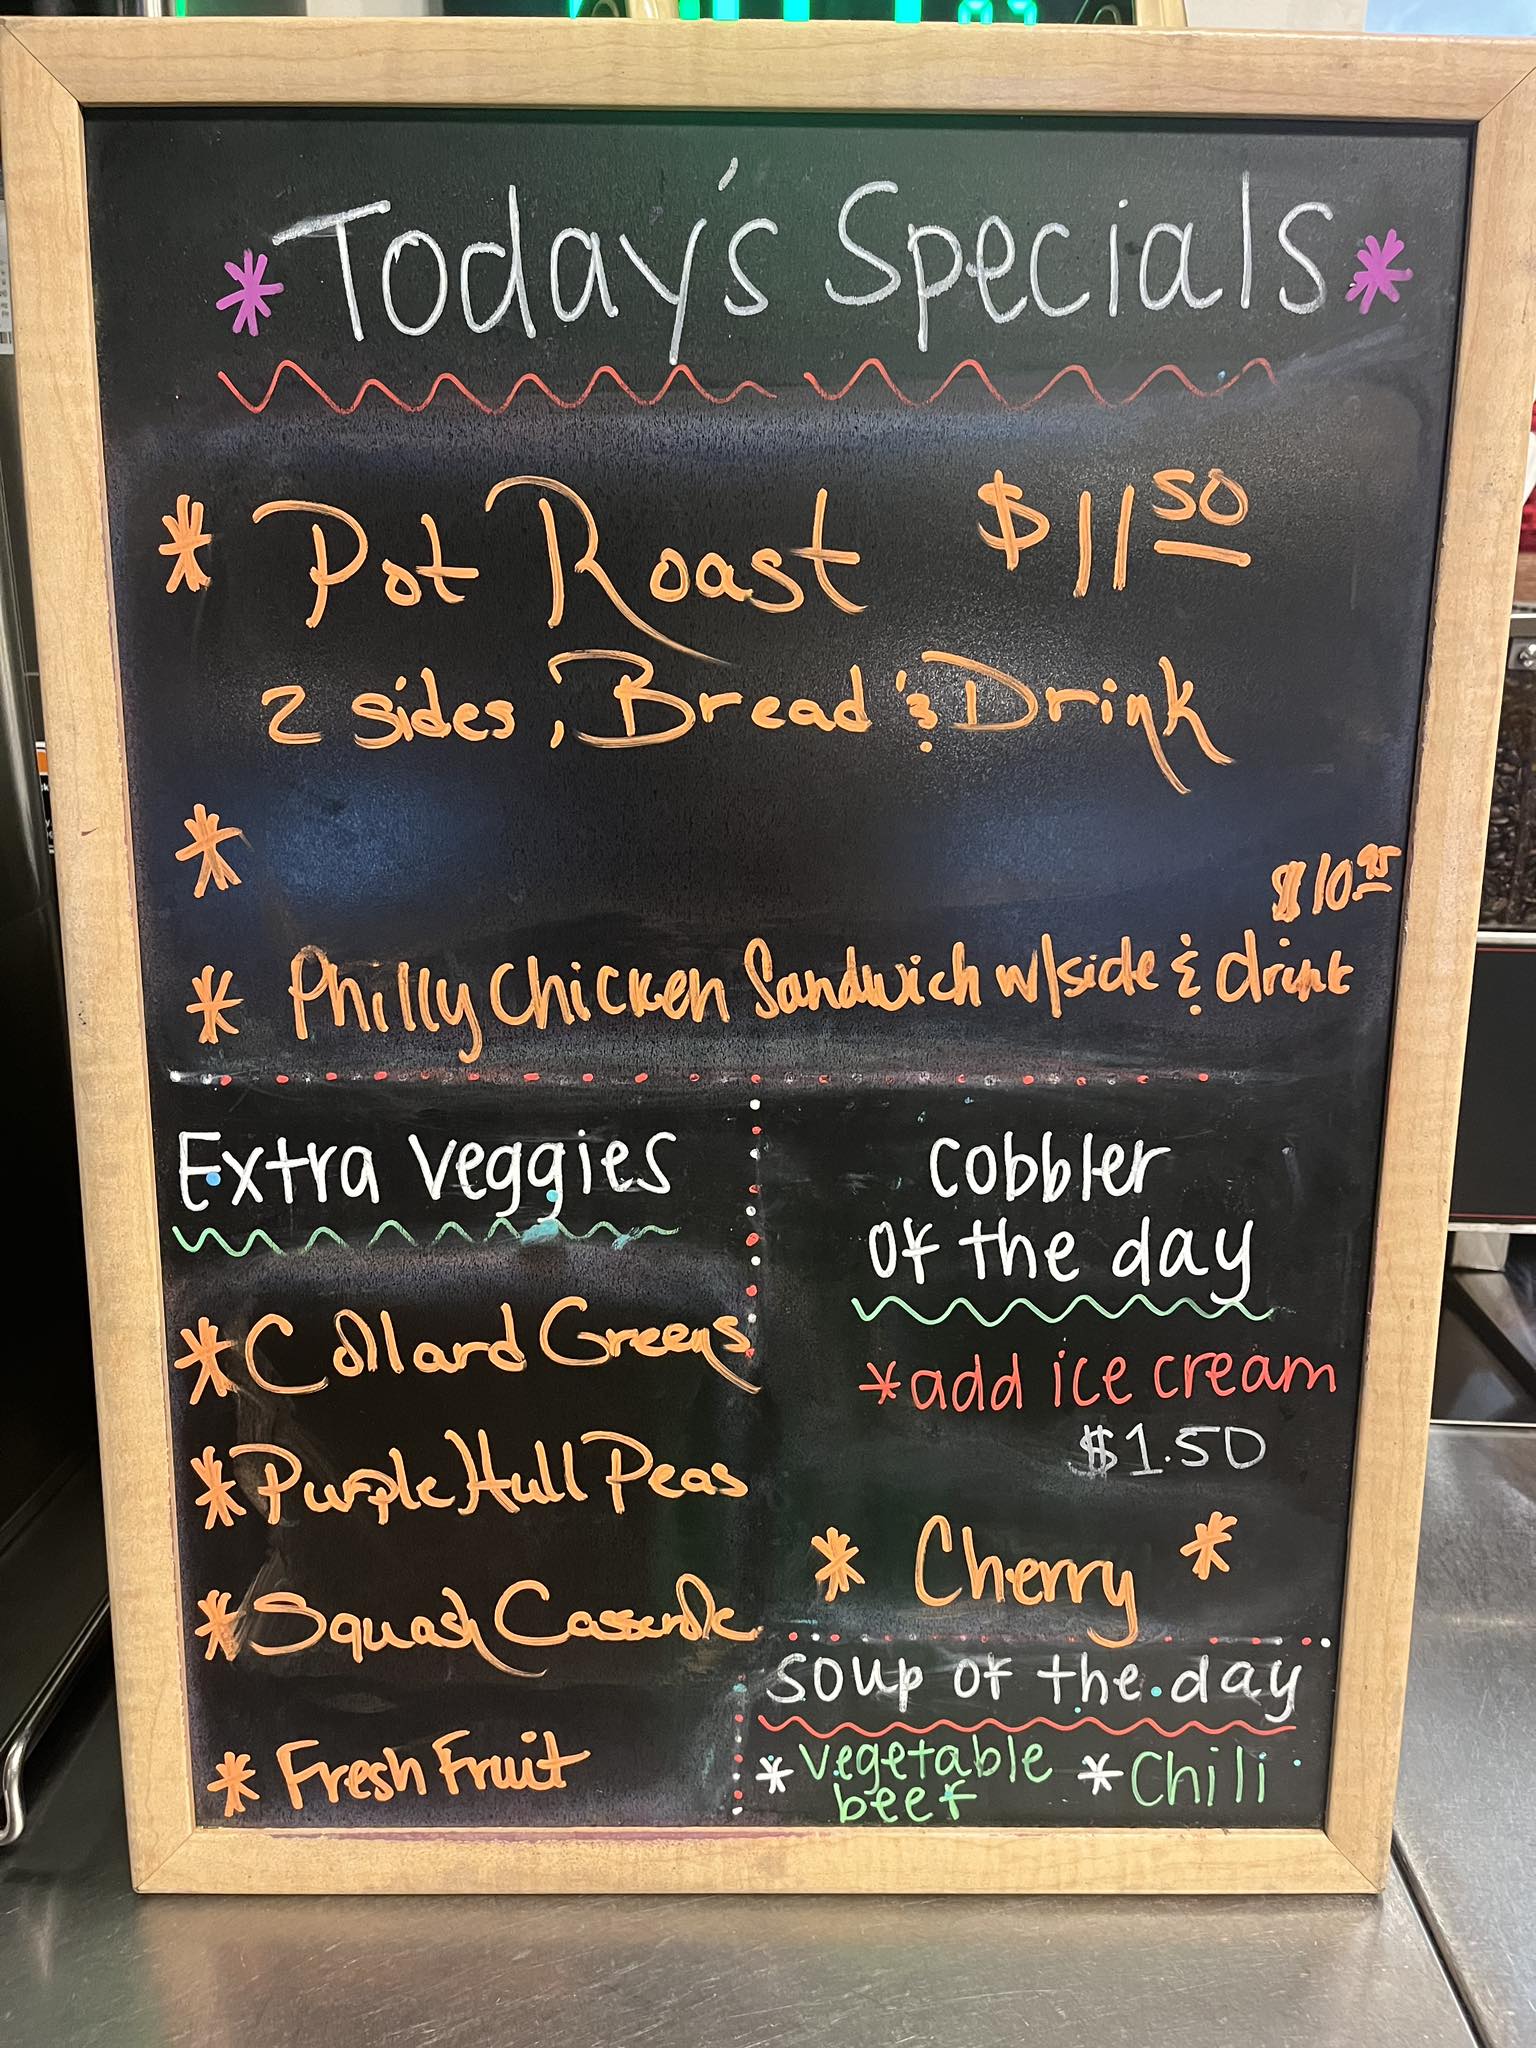 *Today's Specials*
* Pot Roast $11.50
2 sides, Bread & Drink
*
$10.95
* Philly Chicken Sandwich w/side & drink
Extra Veggies
* Collard Greens
* Purple Hull Peas
* Squash Casserole
* Fresh Fruit
Cobbler
of the day
*add ice cream
$1.50
* Cherry *
Soup of the day
*Vegetable *Chili
beef